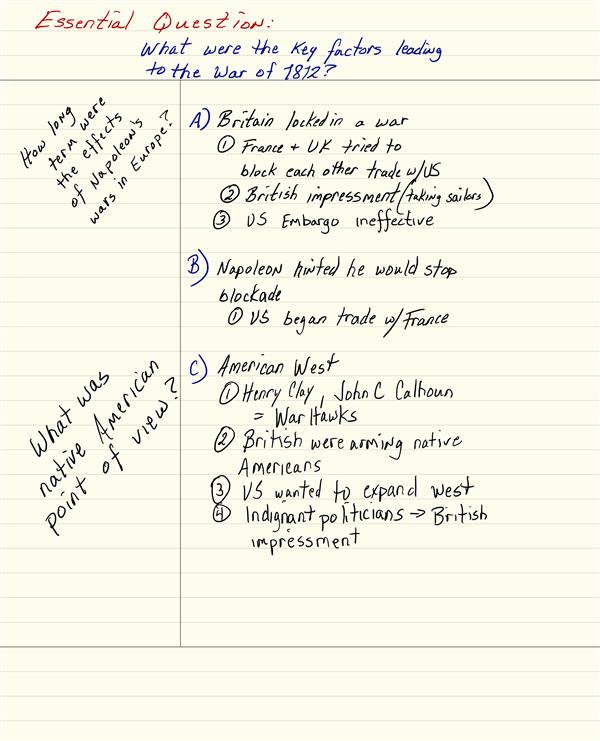 Essential Question:
What were the key factors leading
to the War of 1812?
How long
term were
the effects
of Napoleon's
wars in Europe?
A) Britain locked in a war
① France + UK tried to
block each other trade w/US
② British impressment (taking sailors)
③ US Embargo ineffective
B) Napoleon hinted he would stop
blockade
① US began trade w/France
What was
native American
point of view?
C) American West
① Henry Clay, John C Calhoun
= War Hawks
② British were arming native
Americans
③ US wanted to expand west
④ Indignant politicians → British
impressment